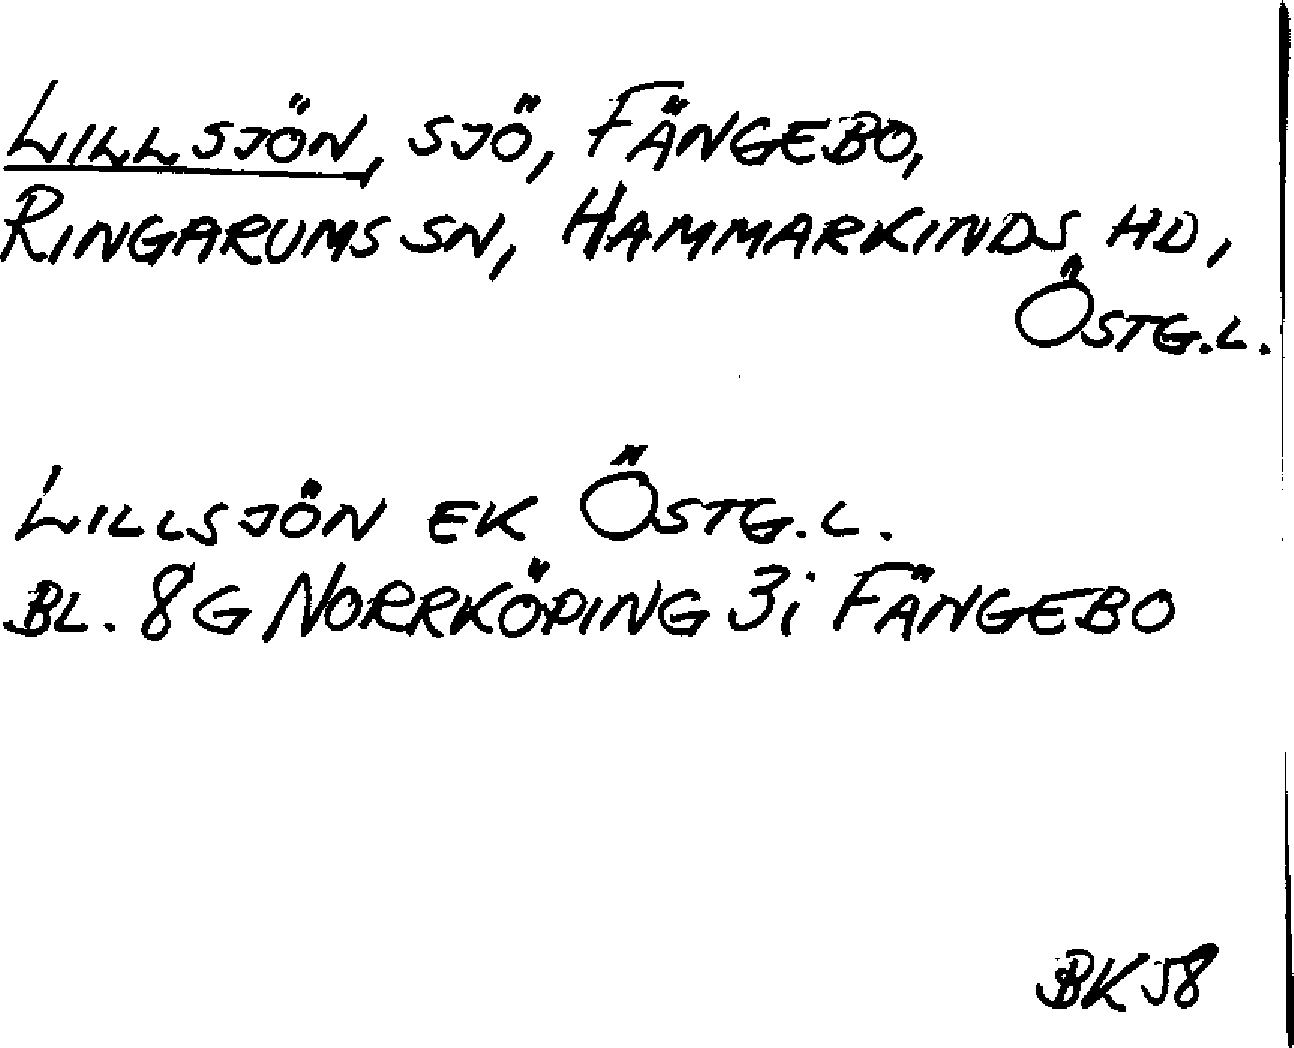 LILLSJÖN, SJÖ, FÄNGEBO,
RINGARUMS SN, HAMMARKINDS HD,
ÖSTG.L.
LILLSJÖN EK ÖSTG.L.
BL. 8G NORRKÖPING 3i FÄNGEBO
BK 58